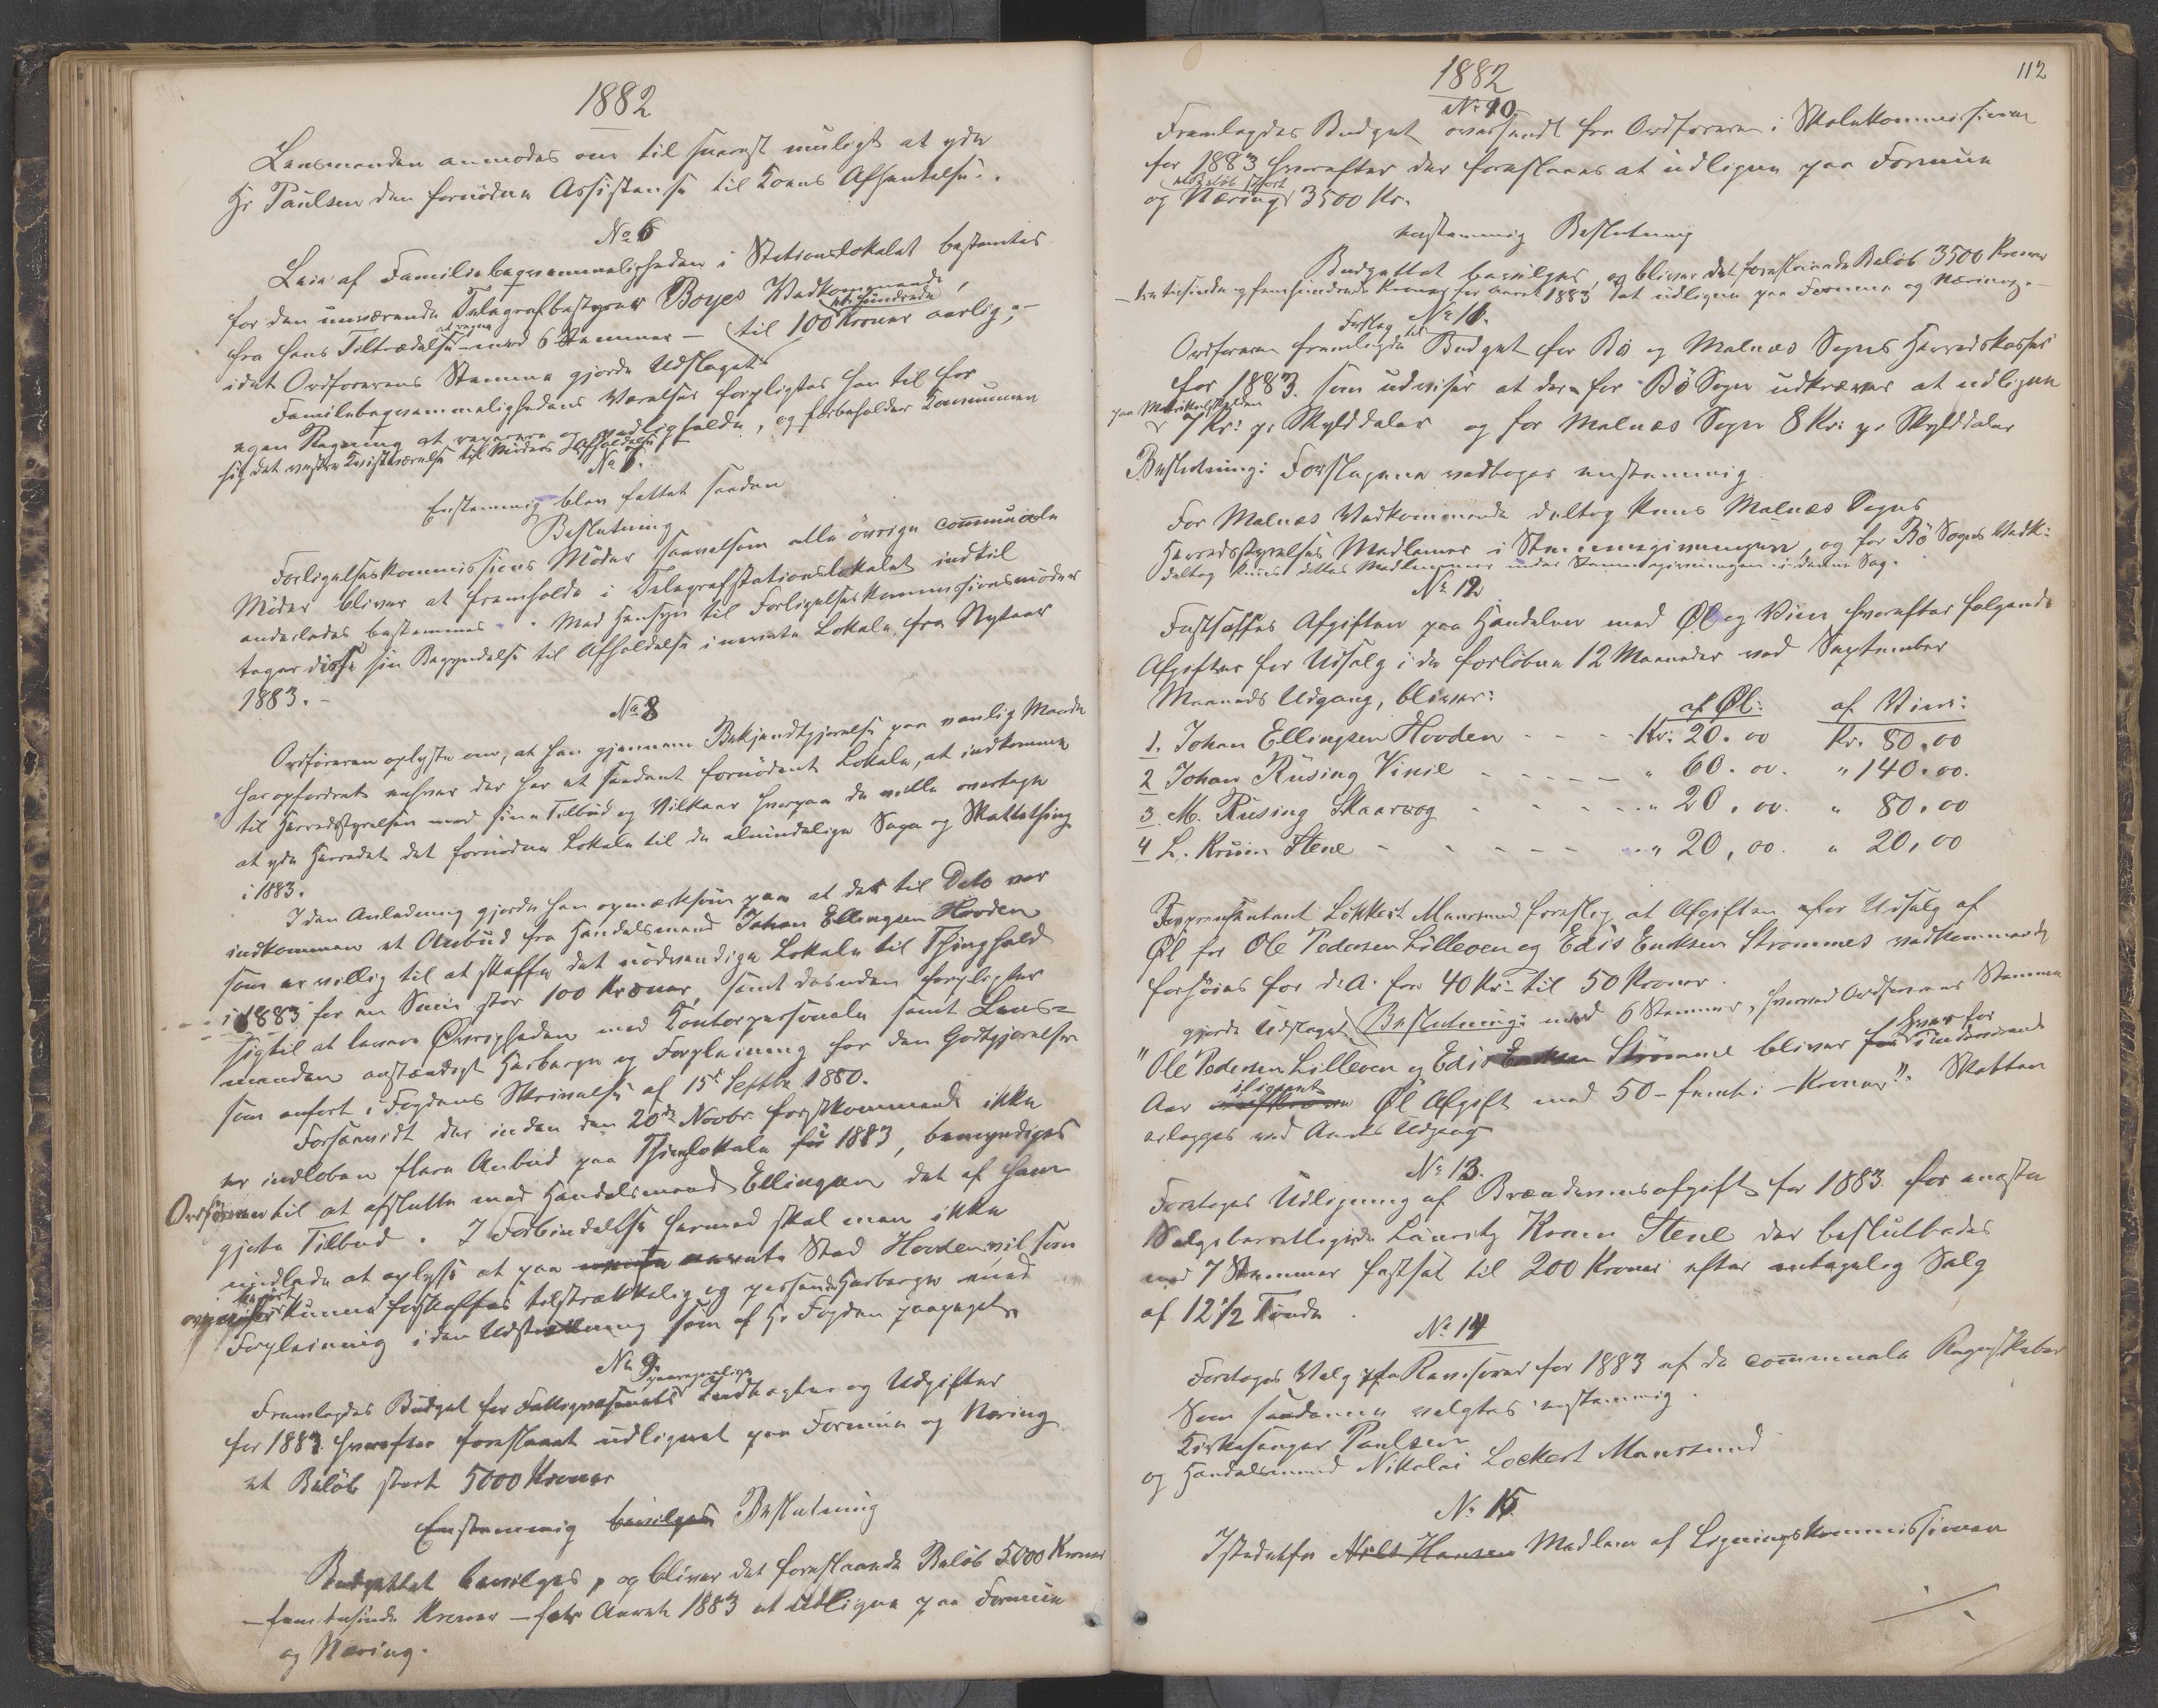 1882
Lensmanden anmodes om til snarest muligt at yde
Hr Paulsen den fornødne Assistanse til Toens Afhentelse.
No 6
Leie af Familiebeqvemmeligheden i Stationslokalet bestemtes
for den nuværende Telegrafbestyrer Boyes Vedkommende,
fra hans Tiltrædelse at regne med 6 Stemmer – til 100 et hundrede Kroner aarlig; –
idet Ordførerens Stemme gjorde Udslaget.
Familebeqvemmelighedens Værelser forpligtes han til for
egen Regning at reparere og vedligeholde, og forbeholder Kommunen
sig det vestre Kvistværelse til Møders Afholdelse
No 7.
Enstemmig blev fattet saadan
Beslutning
Forligelseskommissions Møder saavelsom alle øvrige communale
Møder bliver at fremholde i Telegrafstationslokalet indtil
anderledes bestemmes. Med Hensyn til Forligelseskommissionsmøder
tager disse sin Begyndelse til Afholdelse i nævnte Lokale fra Nytaar
1883. –
No 8
Ordføreren oplyste om, at han gjennem Bekjendtgjørelse paa vanlig Maade
har opfordret enhver der har et saadant fornødent Lokale, at indkomme
til Herredsstyrelsen med sine Tilbud og Vilkaar hvorpaa de vilde overtage
at yde Herredet det fornødne Lokale til de almindelige Sage og Skattething
i 1883.
I den Anledning gjorde han opmærksom paa at der til Dato var
indkommen et Anbud fra Handelsmand Johan Ellingsen Hovden
som er villig til at skaffe det nødvendige Lokale til Thinghold
i 1883 for en Sum stor 100 Kroner, samt desuden forpligter
sig til at levere Øvrigheden med Kontorpersonale samt Lens=
manden anstændigt Herberge og Forpleining for den Godtgjørelse
som anført i Fogdens Skrivelse af 15de Septbr 1880.
Forsaavidt der inden den 20de Novbr førstkommende ikke
er indløben flere Anbud paa Thinglokale for 1883, bemyndiges
Ordføreren til at afslutte med Handelsmand Ellingsen det af ham
gjorte Tilbud. I Forbindelse hermed skal man ikke
undlade at oplyse at paa nævnte Sted Hovden vil som
anført kunne forskaffes tilstrækkelig og passende Herberge med
Forpleining i den Udstrækning som af Hr Fogden paapeget.
No 9.
Fremlagdes Budget for Fattigvæsenets Indtægter og Udgifter
for 1883 hvorefter foreslaaet udlignet paa Formue og Næring
et Beløb stort 5000 Kroner
Enstemmig bevilges Beslutning
Budgettet bevilges, og bliver det foreslaaede Beløb 5000 Kroner
– fem tusinde Kroner – for Aaret 1883 at udligne paa Formue
og Næring.
112
1882
No 10
Fremlagdes Budget oversendt fra Ordføreren i Skolekommissionen
for 1883 hvorefter der foreslaaes at udligne paa Formue
og Næring et Beløb stort 3500 Kr.
enstemmig Beslutning
Budgettet bevilges, og bliver det foreslaaede Beløb 3500 Kroner
– tretusinde og femhundrede Kroner for Aaret 1883 at udligne paa Formue og Næring. –
No 11.
Ordføreren fremlagde Forslag til Budget for Bø og Malnæs Sogns Herredskasser
for 1883. som udviser at der for Bø Sogn udkræves at udligne
paa Matrikulskylden
7 Kr: pr Skylddaler og for Malnæs Sogn 8 Kr: pr Skylddaler
Beslutning: Forslagene vedtoges enstemmig
For Malnæs Vedkommende deltog kuns Malnæs Sogns
Herredsstyrelses Medlemer i Stemmegivningen, og for Bø Sogns Vedk:
deltog kuns dettes Medlemmer under Stemmegivningen i denne Sag.
No 12
Fastsattes Afgiften paa Handelen med Øl og Vin hvorefter følgende
Afgifter for Udsalg i de forløbne 12 Maaneder ved September
Maaneds Udgang, bliver:
af Øl: af Vin:
1. Johan Ellingsen Hovden - - - - Kr. 20.00 Kr. 80.00
2 Johan Rüsing Vinie - - - - - " 60.00. " 140.00.
3. M. Rüsing Skaarvog - - - - - " 20.00. " 80.00
4 L. Kruin Stene - - - - - " 20,00. " 20,00
Repræsentant Løkkert Maursund foreslog at Afgiften for Udsalg af
Øl for Ole Pedersen Lilleven og Edis Eriksen Strømmes vedkommende
forhøies for d. A. fra 40 Kr. til 50 Kroner.
gjorde Udslaget Beslutning: med 6 Stemmer, hvorved Ordførerens Stemme
"Ole Pedersen Lilleven og Edis Eriksen Strømme bliver hver for indeværende
Aar ilignet Øl Afgift med 50 – femti – Kroner". Skatten
erlægges ved Aarets Udgang
No 13.
Foretoges Udligning af Brændevinsafgift for 1883 for eneste
Salgsberettigede Lauritz Kruin Stene der besluttedes
med 7 Stemmer fastsat til 200 Kroner efter antagelig Salg
af 12 1/2 Tønde
No 14
Foretoges Valg paa Revisorer for 1883 af de communale Regnskaber
Som saadanne valgtes enstemmig.
Kirkesanger Paulsen
og Handelsmand Nikolai Lockert Maursund
No 15
Istedetfor Nils Hansen Medlem af Ligningskommissionen